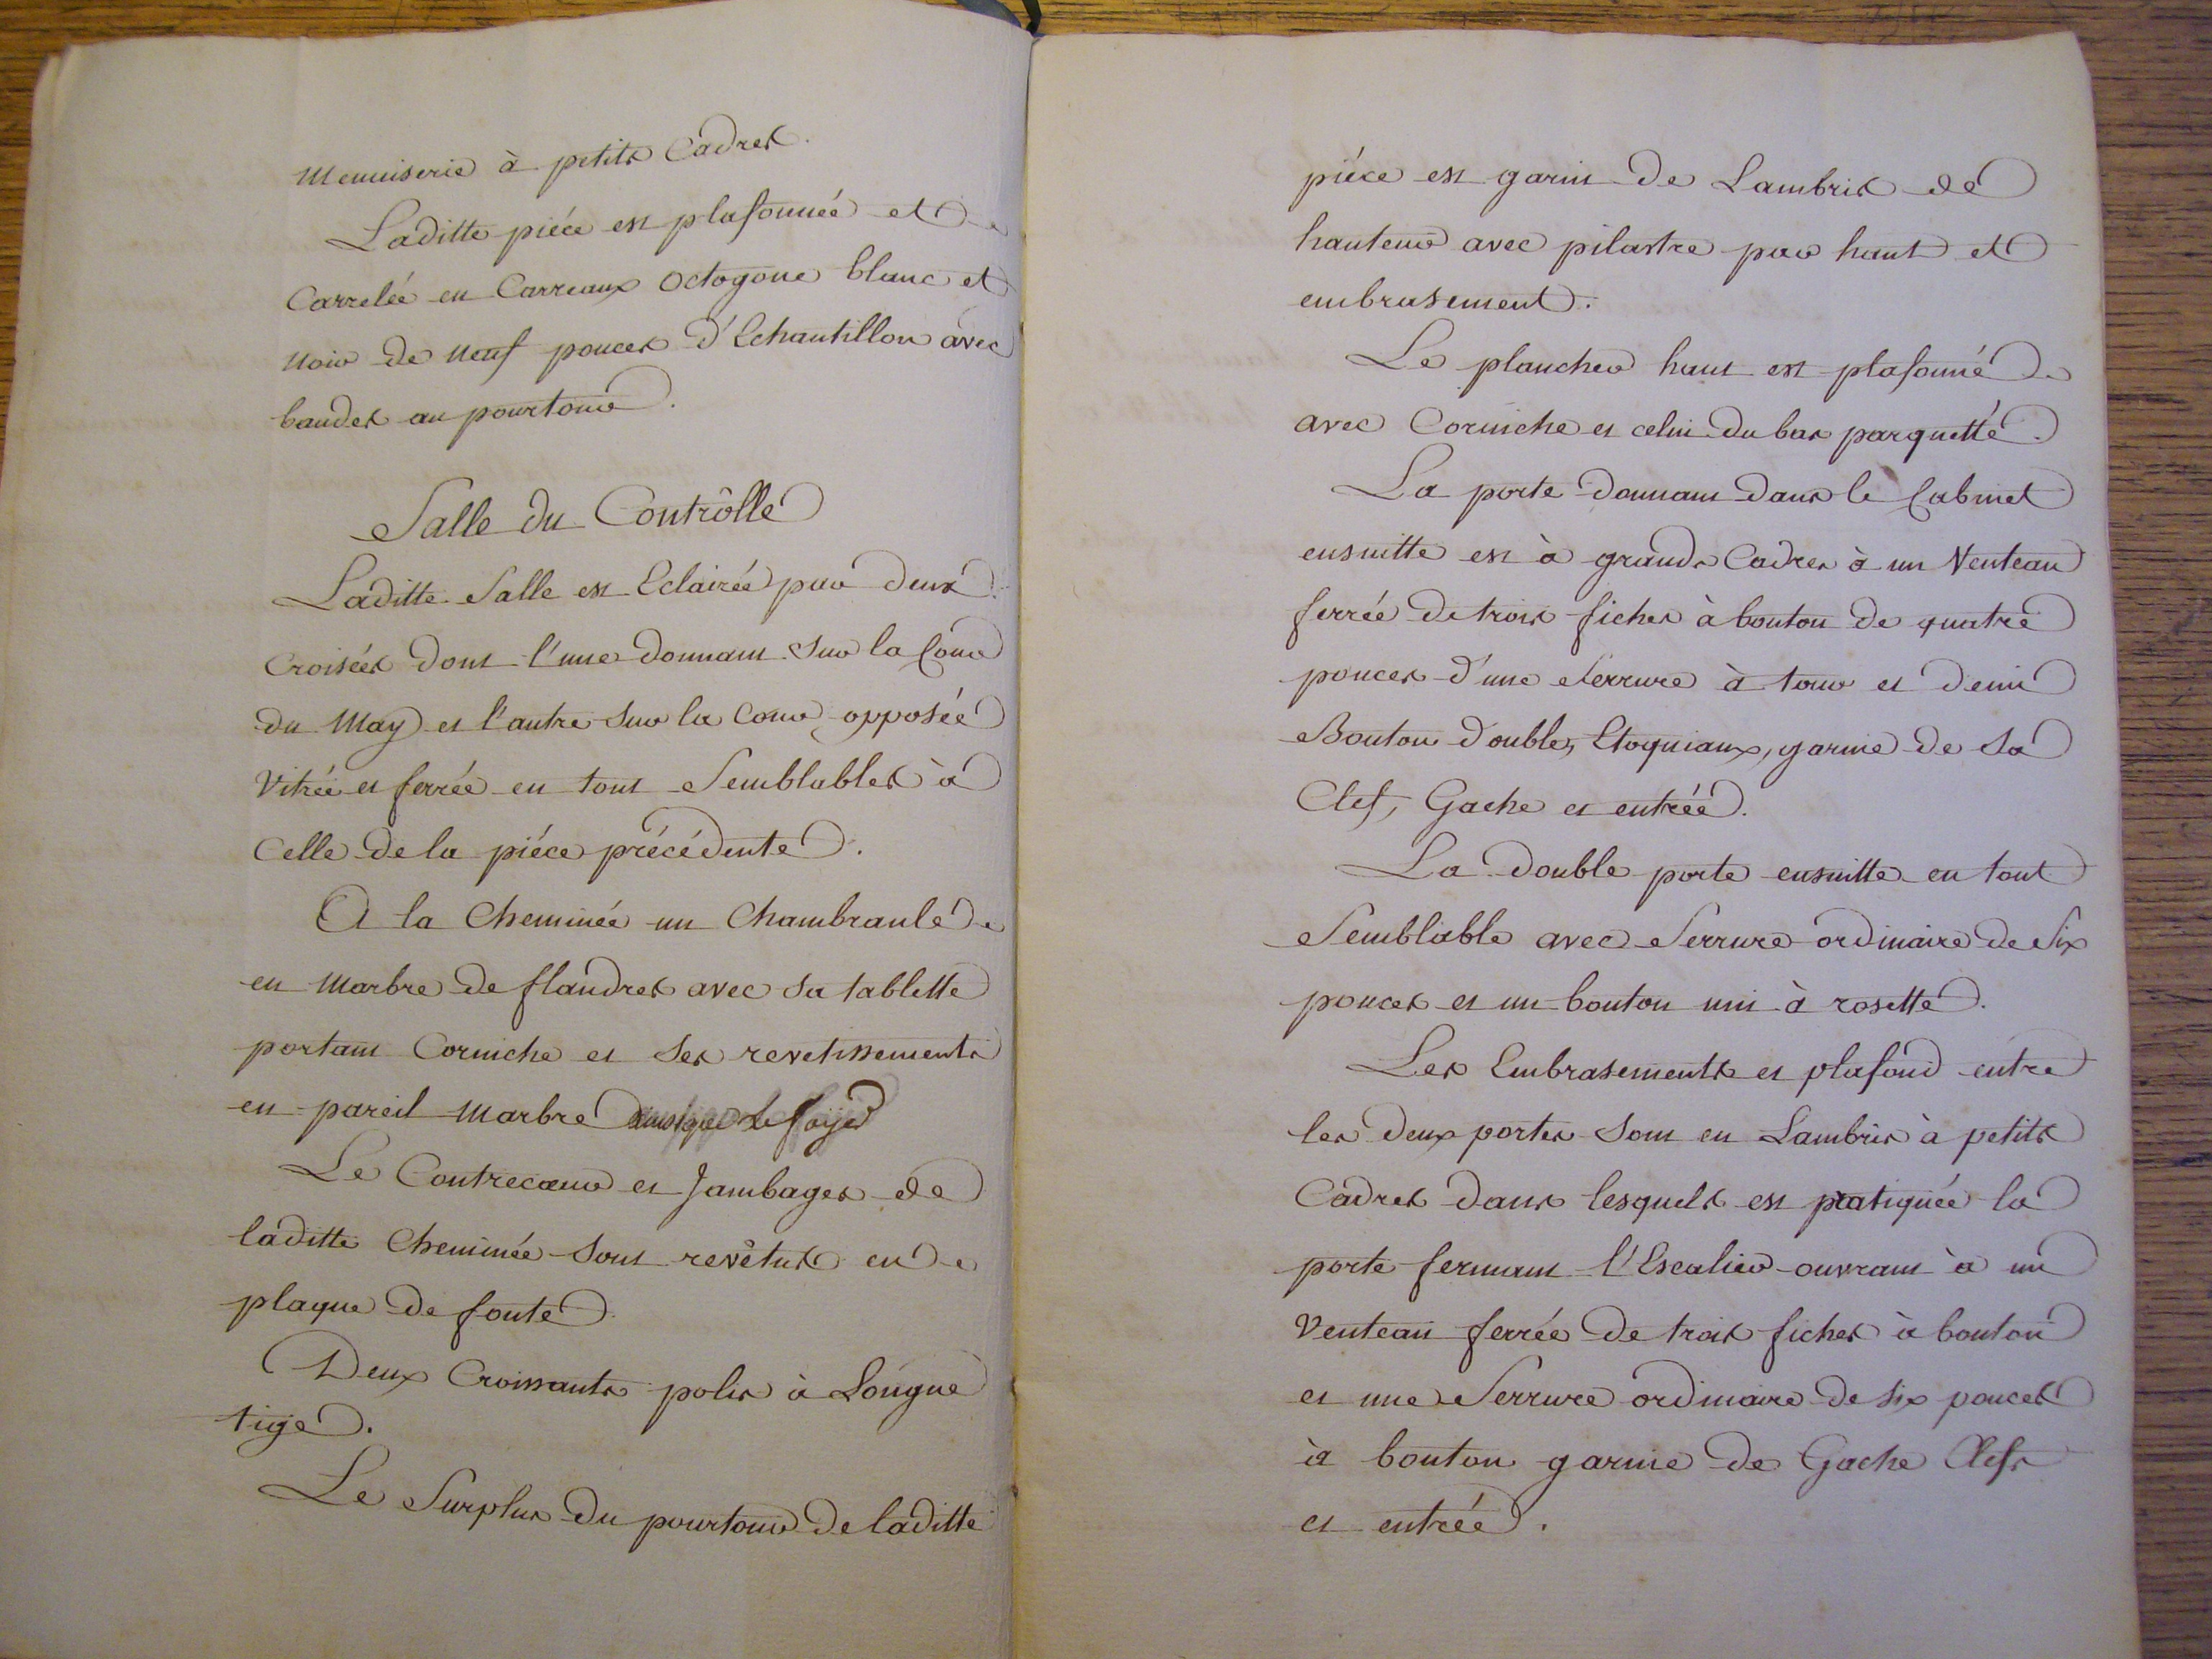 Menuiserie à petits Cadres.
Laditte piéce est plafonnée et
Carrelée en Carreaux Octogone blanc et
Noir de Neuf pouces d'Echantillon avec
bandes au pourtour.
Salle du Contrôlle
Laditte Salle est Eclairée par deux
Croisées dont l'une donnant sur la Cour
du May et l'autre sur la Cour opposée
Vitrée et ferrée en tout Semblables à
Celle de la piéce précédente.
A la Cheminée un Chambranle
en Marbre de flandres avec sa tablette
portant Corniche et ses revetissements
en pareil Marbre ainsi que le foyer
Le Contrecœur et Jambages de
laditte Cheminée sont revêtus en
plaque de fonte.
Deux Croissants polis à Longue
tige.
Le Surplus du pourtour de laditte
piéce est garni de Lambris de
hauteur avec pilastre par haut et
embrasement.
Le plancher haut est plafonné
avec Corniche et celui du bas parquetté.
La porte donnant dans le Cabinet
ensuitte est à grands Cadres à un Venteau
ferrée de trois fiches à bouton de quatre
pouces d'une Serrure à tour et demi
Bouton double, Etoquiaux, garnie de sa
Clef, Gache et entrée.
La double porte ensuitte en tout
Semblable avec Serrure ordinaire de Six
pouces et un bouton uni à rosette.
Les Embrasements et plafond entre
les deux portes sont en Lambris à petits
Cadres dans lesquels est pratiquée la
porte fermant l'Escalier ouvrant à un
Venteau ferrée de trois fiches à bouton
et une Serrure ordinaire de six pouces
à bouton garnie de Gache Clefs
et entrée.